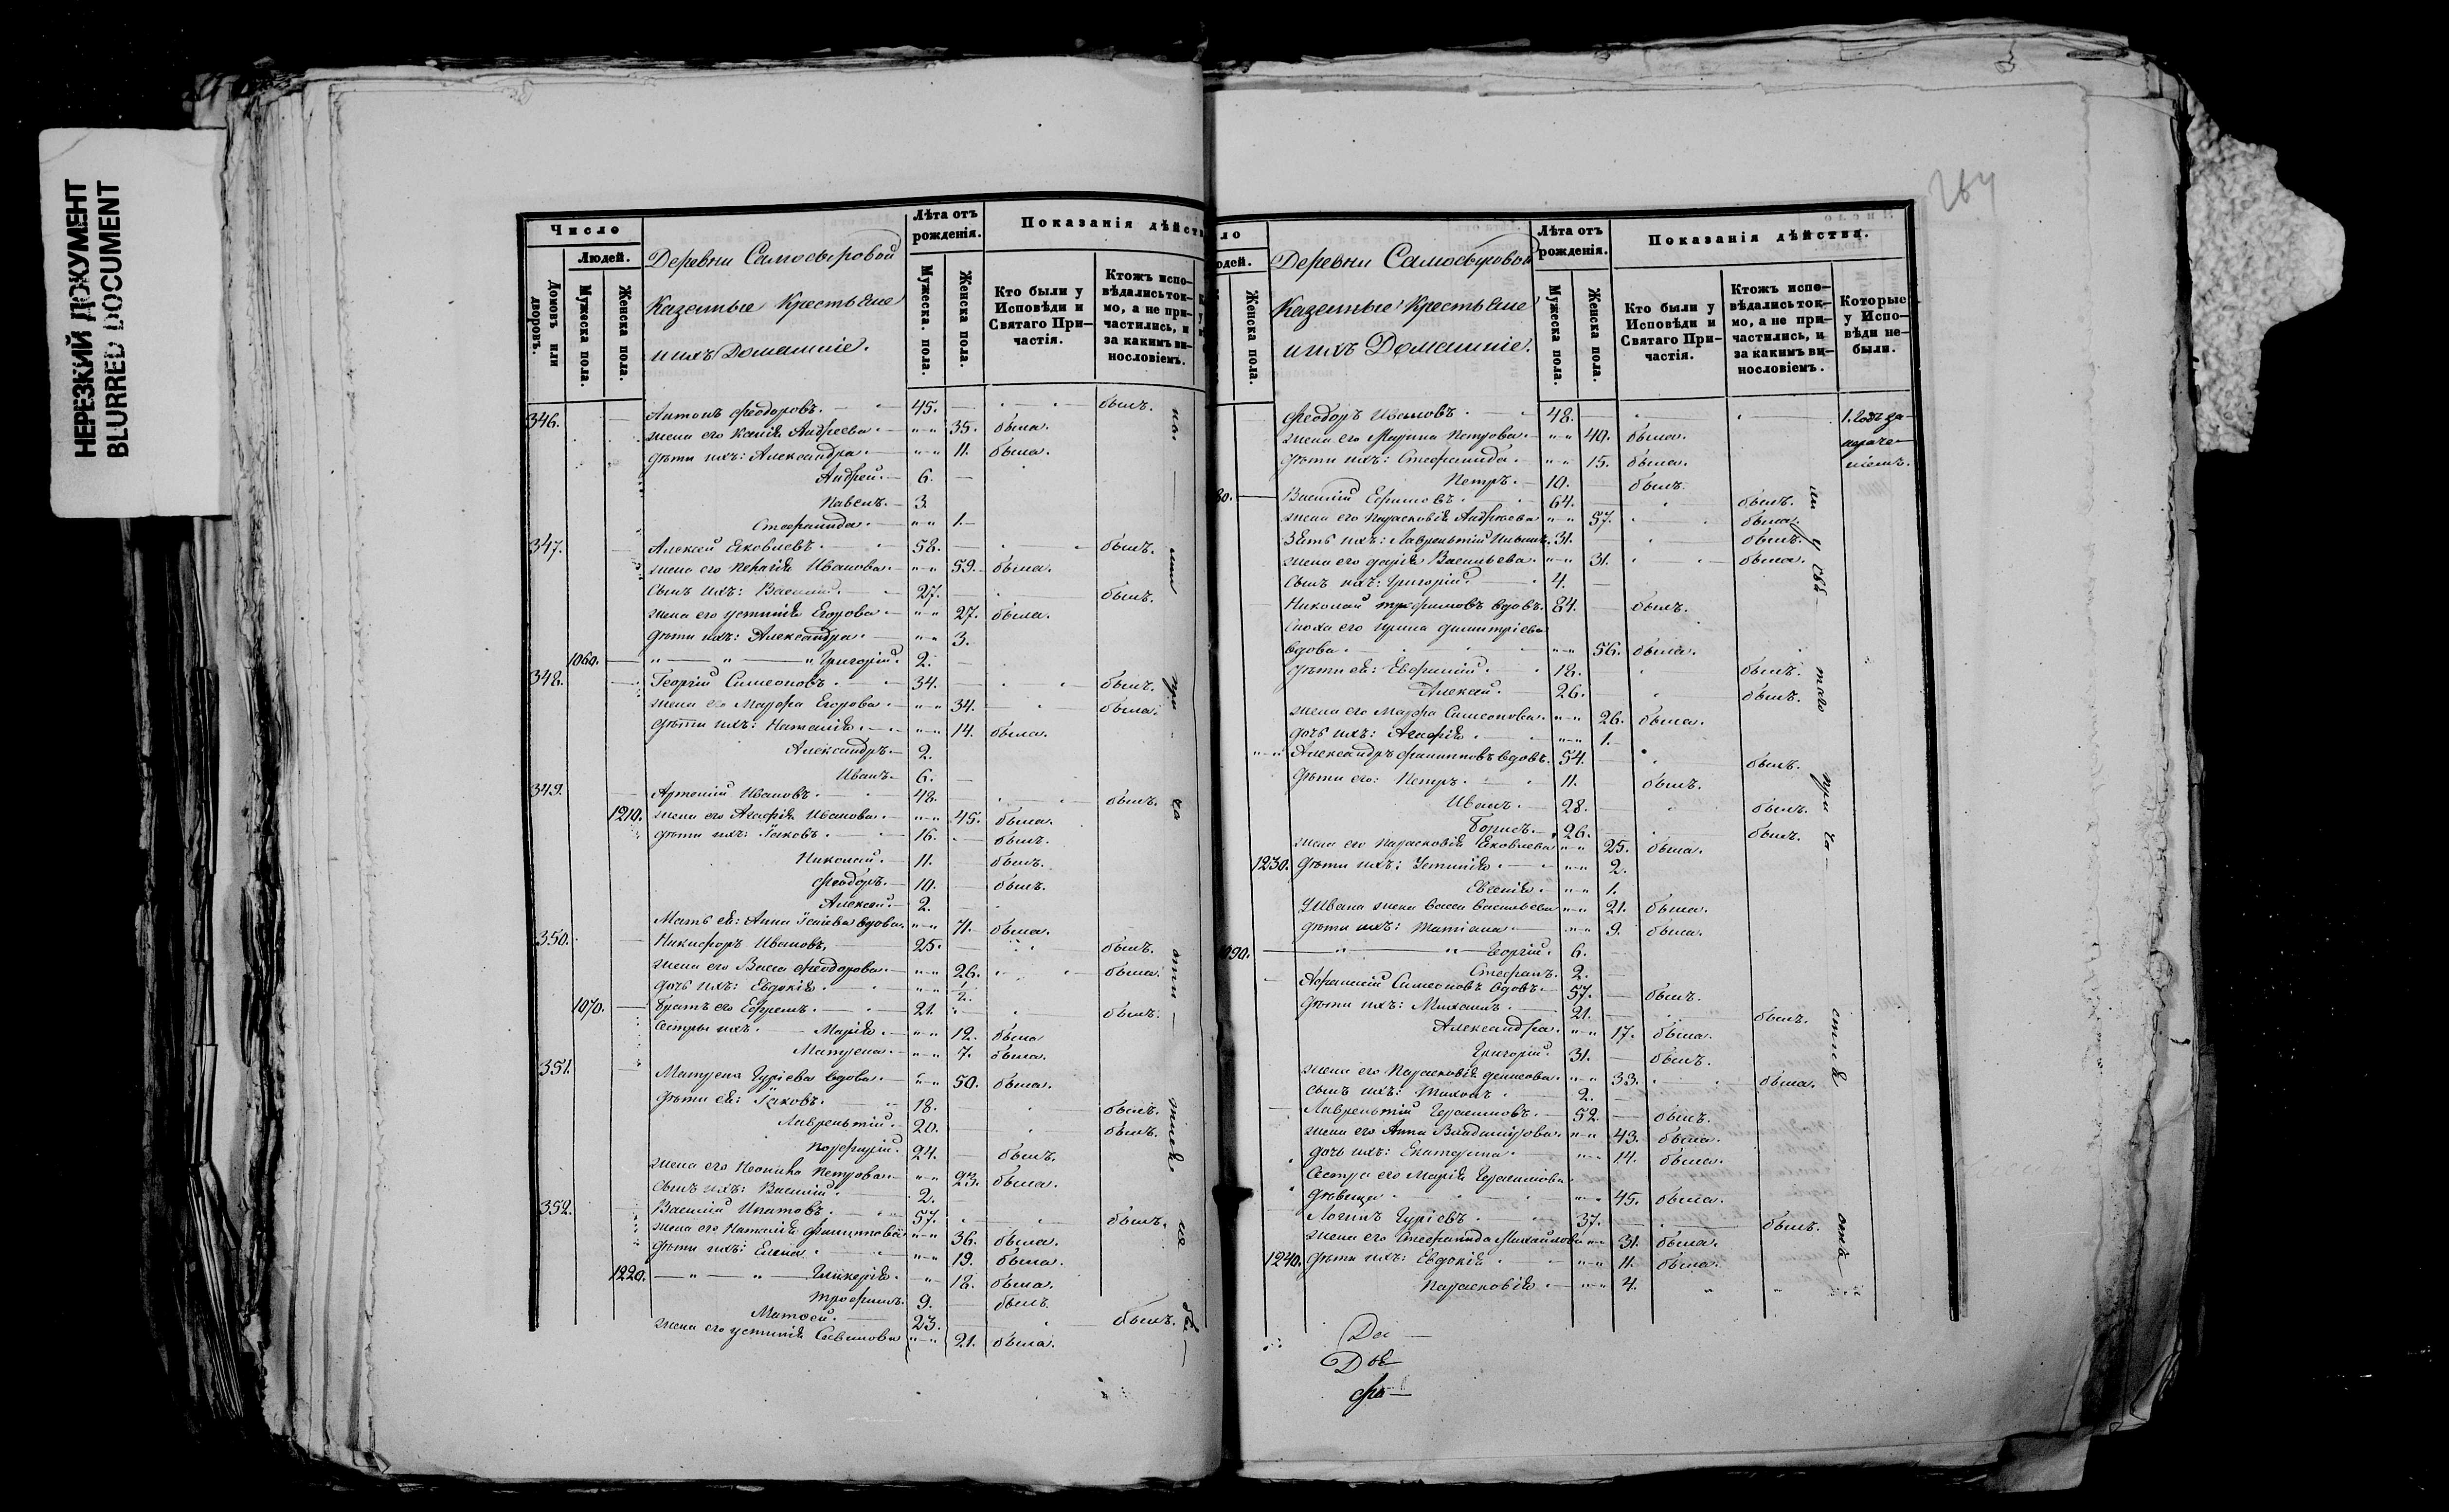 НЕРЕЗКИЙ ДОКУМЕНТ
BLURRED DOCUMENT
Число
Людей.
Домовъ или дворовъ.
Мужеска пола.
Женска пола.
Деревни Самосыровой
Казенные Крестьяне
и ихъ Домашніе.
Лѣта отъ рожденія.
Мужеска пола.
Женска пола.
Показанія дѣйств
Кто были у Исповѣди и Святаго При-
частія.
Ктожъ испо-
вѣдались ток-
мо, а не при-
частились, и
за какимъ ви-
нословіемъ.
346. Антонъ Феодоровъ. 45. былъ.
жена его Ксенія Андреева. 35. была.
дѣти ихъ: Александра. 11. была.
Андрей. 6.
Павелъ. 3.
Стефанида. 1.
347. Алексей Яковлевъ. 58. былъ.
жена его Иванова. 59. была.
Сынъ ихъ: Василій. 27. былъ.
жена его Устинія Егорова. 27. была.
дѣти ихъ: Александра. 3.
1060. Григорій. 2.
348. Георгій Симеоновъ. 34. былъ.
жена его Марфа Егорова. 34. была.
дѣти ихъ: Наталія. 14. была.
Александръ. 2.
Иванъ. 6.
349. Артемій Ивановъ. 48. былъ.
1210. жена его Агафія Иванова. 45. была.
дѣти ихъ: Іаковъ. 16. былъ.
Николай. 11. былъ.
Феодоръ. 10. былъ.
Алексей. 2.
Мать ея: Анна вдова. 71. была.
350. Никифоръ Ивановъ. 25. былъ.
жена его Васса Феодорова. 26. была.
дочь ихъ: Евдокія. 1/2.
1070. Братъ его Ефремъ. 21. былъ.
Сестры ихъ: Марія. 12. была
Матрена. 7. была.
351. Матрена Гуріева вдова. 50. была.
дѣти ея: Іаковъ. 18. былъ.
Лаврентій. 20. былъ.
Порфирій. 24. былъ.
жена его Петрова. 23. была.
Сынъ ихъ: Василій. 2.
352. Василій Ипатовъ. 57. былъ.
жена его Наталія Филиппова 36. была.
дѣти ихъ: Елена. 19. была.
1220. Гликерія. 18. была.
Трофимъ. 9. былъ.
Матвей. 23. былъ.
жена его Устинія Савинова 21. была.
264
ло
юдей.
Женска пола.
Деревни Самосыровой
Казенные Крестьяне
и ихъ Домашніе.
Лѣта отъ рожденія.
Мужеска пола.
Женска пола.
Показанія дѣйства.
Кто были у
Исповѣди и
Святаго При-
частія.
Ктожъ испо-
вѣдались ток-
мо, а не при-
частились, и
за какимъ ви-
нословіемъ.
Которые
у Испо-
вѣди не-
были.
Феодоръ Ивановъ. 48. 1. Годъ за-
жена его Марина Петрова. 40. была.
дѣти ихъ: Стефанида. 15. была.
Петръ. 10. былъ.
80. Василій Ефимовъ. 64. былъ.
жена его Парасковія Андреева 57. была.
Зять ихъ: Лаврентій 31. былъ.
жена его Дарія Васильева. 31. была.
Сынъ ихъ: Григорій. 4.
Николай Трофимовъ вдовъ. 84. былъ.
Сноха его Ирина Димитріева
вдова. 56. была.
дѣти ея: Евфимій. 18. былъ.
Алексей. 26. былъ.
жена его Марфа Симеонова. 26. была.
дочь ихъ: Агафія. 1.
Александръ Филипповъ вдовъ. 54. былъ.
дѣти его: Петръ. 11. былъ.
Иванъ. 28. былъ.
Борисъ. 26. былъ.
жена его Парасковія Яковлева 25. была.
1230. дѣти ихъ: Устинія. 2.
Евгенія. 1.
У Ивана жена Васса Васильева 21. была.
дѣти ихъ: Татіана. 9. была.
1090. Георгій. 6.
Стефанъ. 2.
Афанасій Симеоновъ вдовъ. 57. былъ.
дѣти ихъ: Михаилъ. 21. былъ.
Александра. 17. была.
Григорій. 31. былъ.
жена его Парасковія Денисова. 33. была.
сынъ ихъ: Тихонъ. 2.
Лаврентій Герасимовъ. 52. былъ.
жена его Анна Владимірова. 43. была.
дочь ихъ: Екатерина. 14. была.
Сестра его Марія Герасимова
дѣвица. 45. была.
Логинъ Гуріевъ. 37. былъ.
жена его Стефанида Михайлова 31. была.
1240. дѣти ихъ: Евдокія. 11. была.
Парасковія. 4.